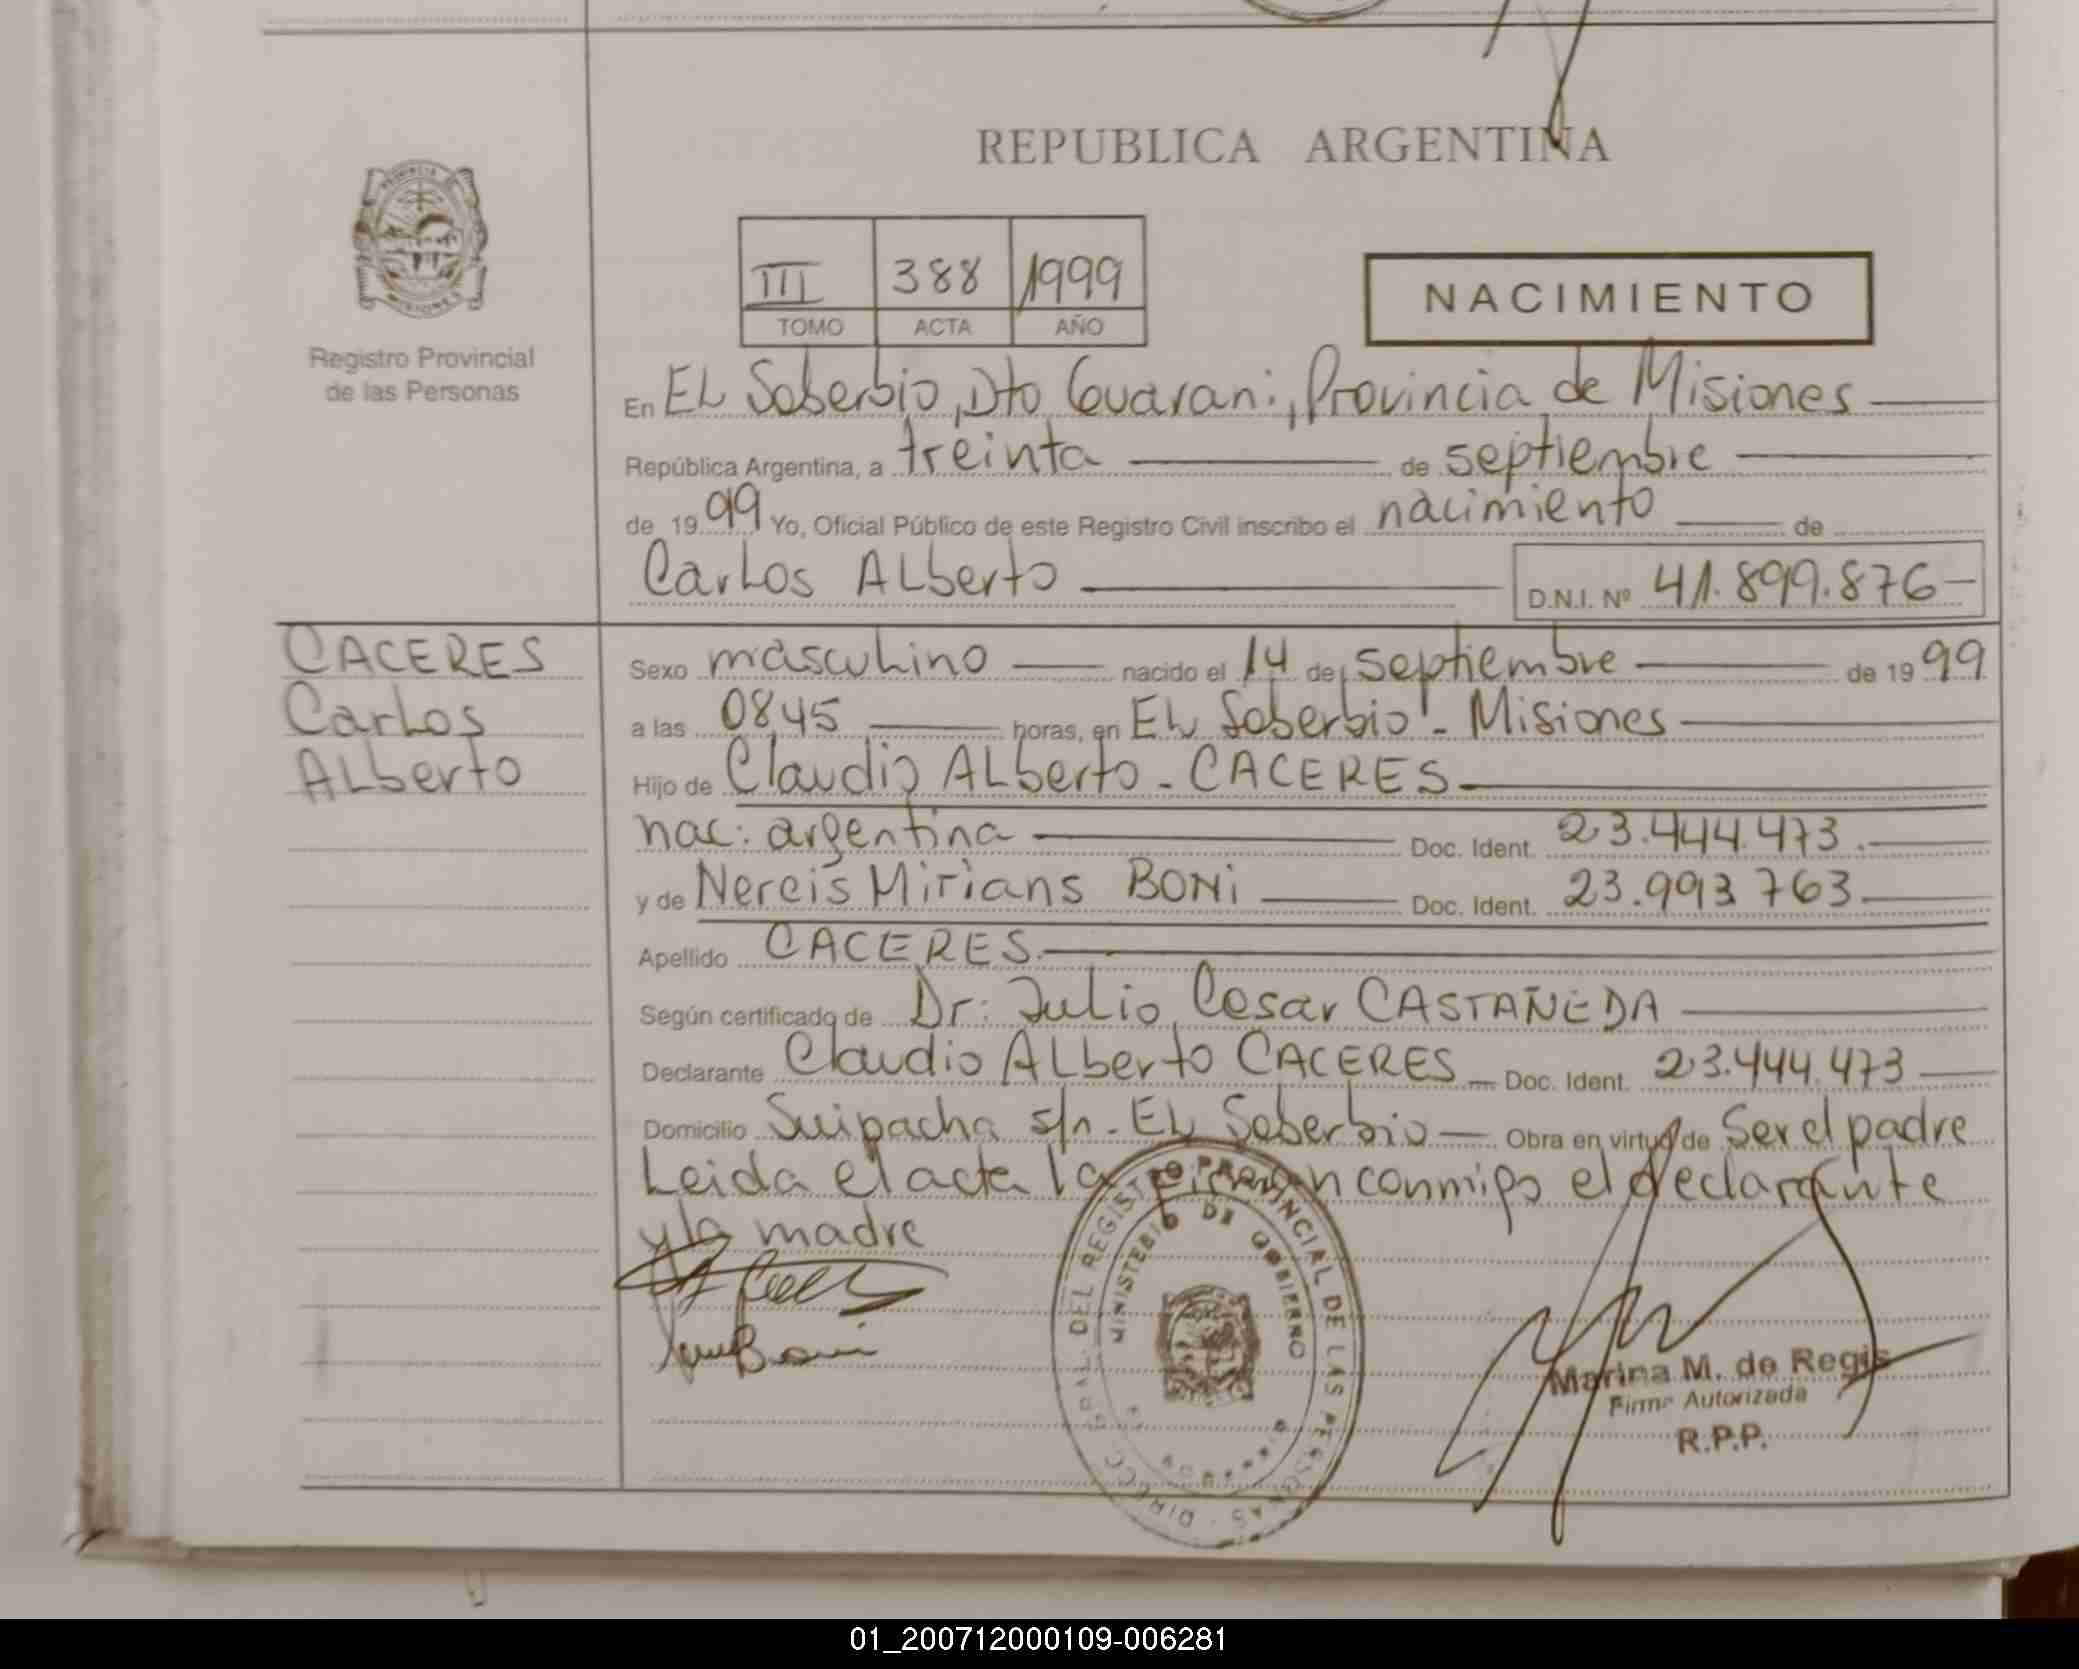 REPUBLICA ARGENTINA
PROVINCIA DE
MISIONES
Registro Provincial
de las Personas
III 388 1999
TOMO ACTA AÑO
NACIMIENTO
En EL Soberbio, Dto Guarani, Provincia de Misiones
República Argentina, a treinta de septiembre
de 1999 Yo, Oficial Público de este Registro Civil inscribo el nacimiento de
Carlos ALberto D.N.I. Nº 41.899.876
CACERES
Carlos
ALberto
Sexo masculino nacido el 14 de septiembre de 1999
a las 0845 horas, en EL Soberbio - Misiones
Hijo de Claudio ALberto - CACERES
nac: argentina Doc. Ident. 23.444.473.
y de Nereis Mirians BONi Doc. Ident. 23.993 763
Apellido CACERES.
Según certificado de Dr: Julio Cesar CASTAÑEDA
Declarante Claudio ALberto CACERES Doc. Ident. 23.444.473
Domicilio Suipacha s/n - EL Soberbio Obra en virtud de Ser el padre
Leida el acta la firman conmigo el declarante
y la madre
DIRECC. GRAL. DEL REGISTRO PROVINCIAL DE LAS PERSONAS
MINISTERIO DE GOBIERNO
Marina M. de Regis
Firma Autorizada
R.P.P.
01_200712000109-006281